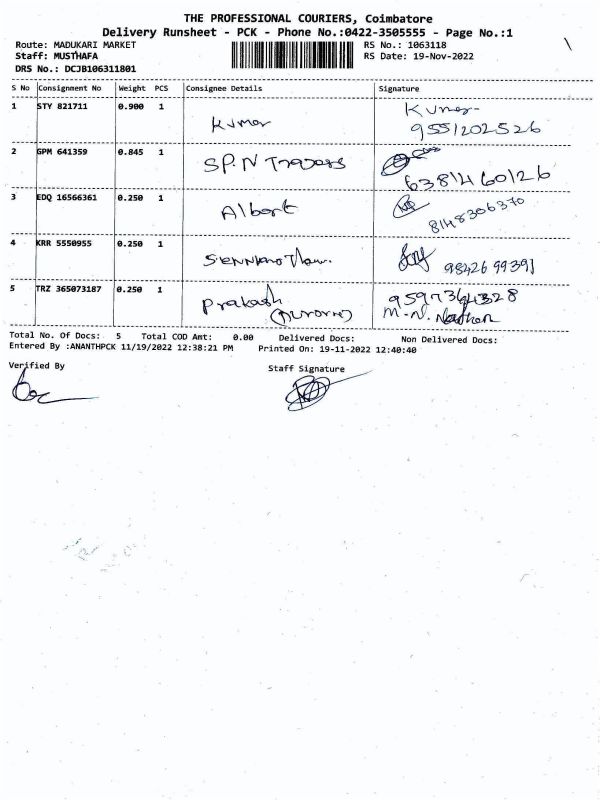 THE PROFESSIONAL COURIERS, Coimbatore
Delivery Runsheet - PCK - Phone No.:0422-3505555 - Page No.:1
Route: MADUKARI MARKET RS No.: 1063118
Staff: MUSTHAFA RS Date: 19-Nov-2022
DRS No.: DCJB106311801
S No Consignment No Weight PCS Consignee Details Signature
1 STY 821711 0.900 1 Kumar Kumar
9551202526
2 GPM 641359 0.845 1 SP.N Traders
6381460126
3 EDQ 16566361 0.250 1 Albert
8148306370
4 KRR 5550955 0.250 1
98426 99391
5 TRZ 365073187 0.250 1 Prakash 9597364328
M.N. Nathan
Total No. Of Docs: 5 Total COD Amt: 0.00 Delivered Docs: Non Delivered Docs:
Entered By :ANANTHPCK 11/19/2022 12:38:21 PM Printed On: 19-11-2022 12:40:40
Verified By Staff Signature